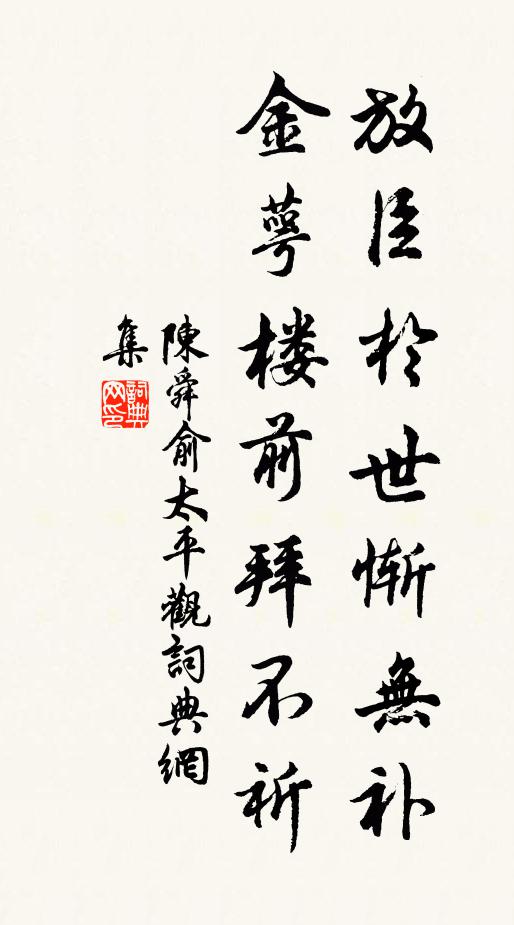 放臣於世慚無补
金萼楼前拜不祈
陳舜俞太平觀詞典網
集
詞典
网印